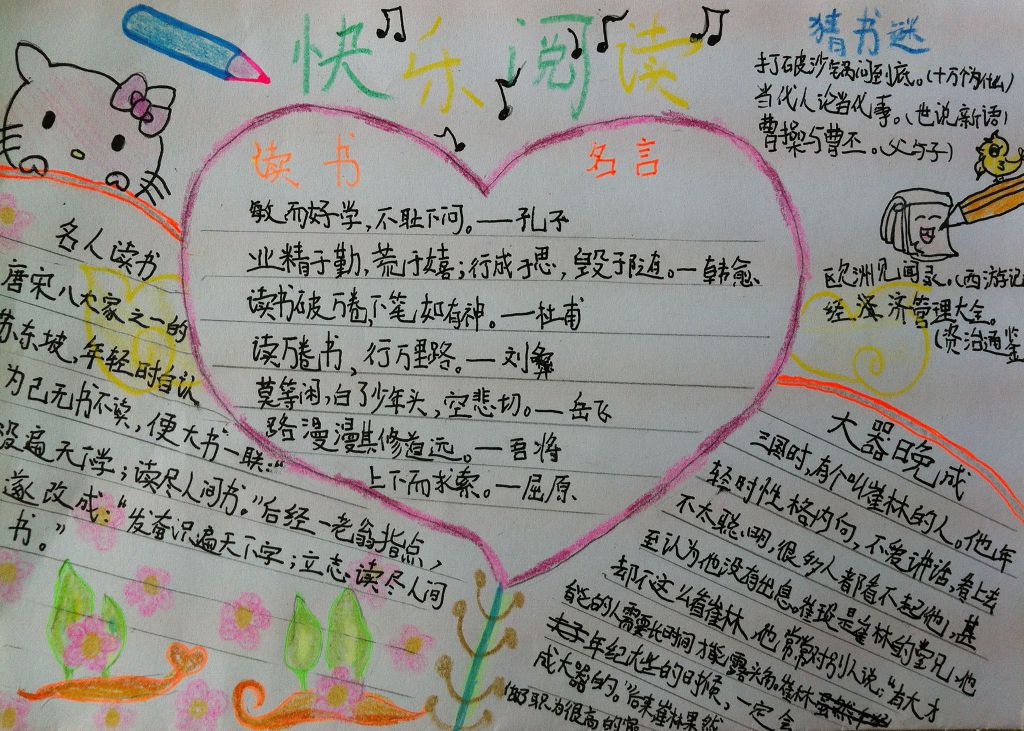 快乐阅读
猜书迷
打破沙锅问到底。(十万个为什么)
当代人论当代事。(世说新语)
曹操与曹丕。(父与子)
欧洲见闻录。(西游记
经济管理大全。
(资治通鉴
读书
名言
敏而好学，不耻下问。—孔子
业精于勤，荒于嬉；行成于思，毁于随。—韩愈
读书破万卷，下笔如有神。—杜甫
读万卷书，行万里路。—刘彝
莫等闲，白了少年头，空悲切。—岳飞
路漫漫其修道远。—吾将
上下而求索。—屈原
名人读书
唐宋八大家之一的
苏东坡，年轻时自认
为已无书不读，便大书一联：“
没遍天下学；读尽人间书。”后经一老翁指点，
遂改成：“发奋识遍天下字；立志读尽人间
书。”
大器晚成
三国时，有个叫崔林的人。他年
轻时性格内向，不爱讲话，看上去
不太聪明，很多人都看不起他们，甚
至认为他没有出息。崔琰是崔林的堂兄，他
却不这么看崔林，他常常对别人说：“有大才
能的人需要长时间才能露头角崔林
年纪大些的时候，一定会
成大器的。”后来崔林果然
做职为很高的官